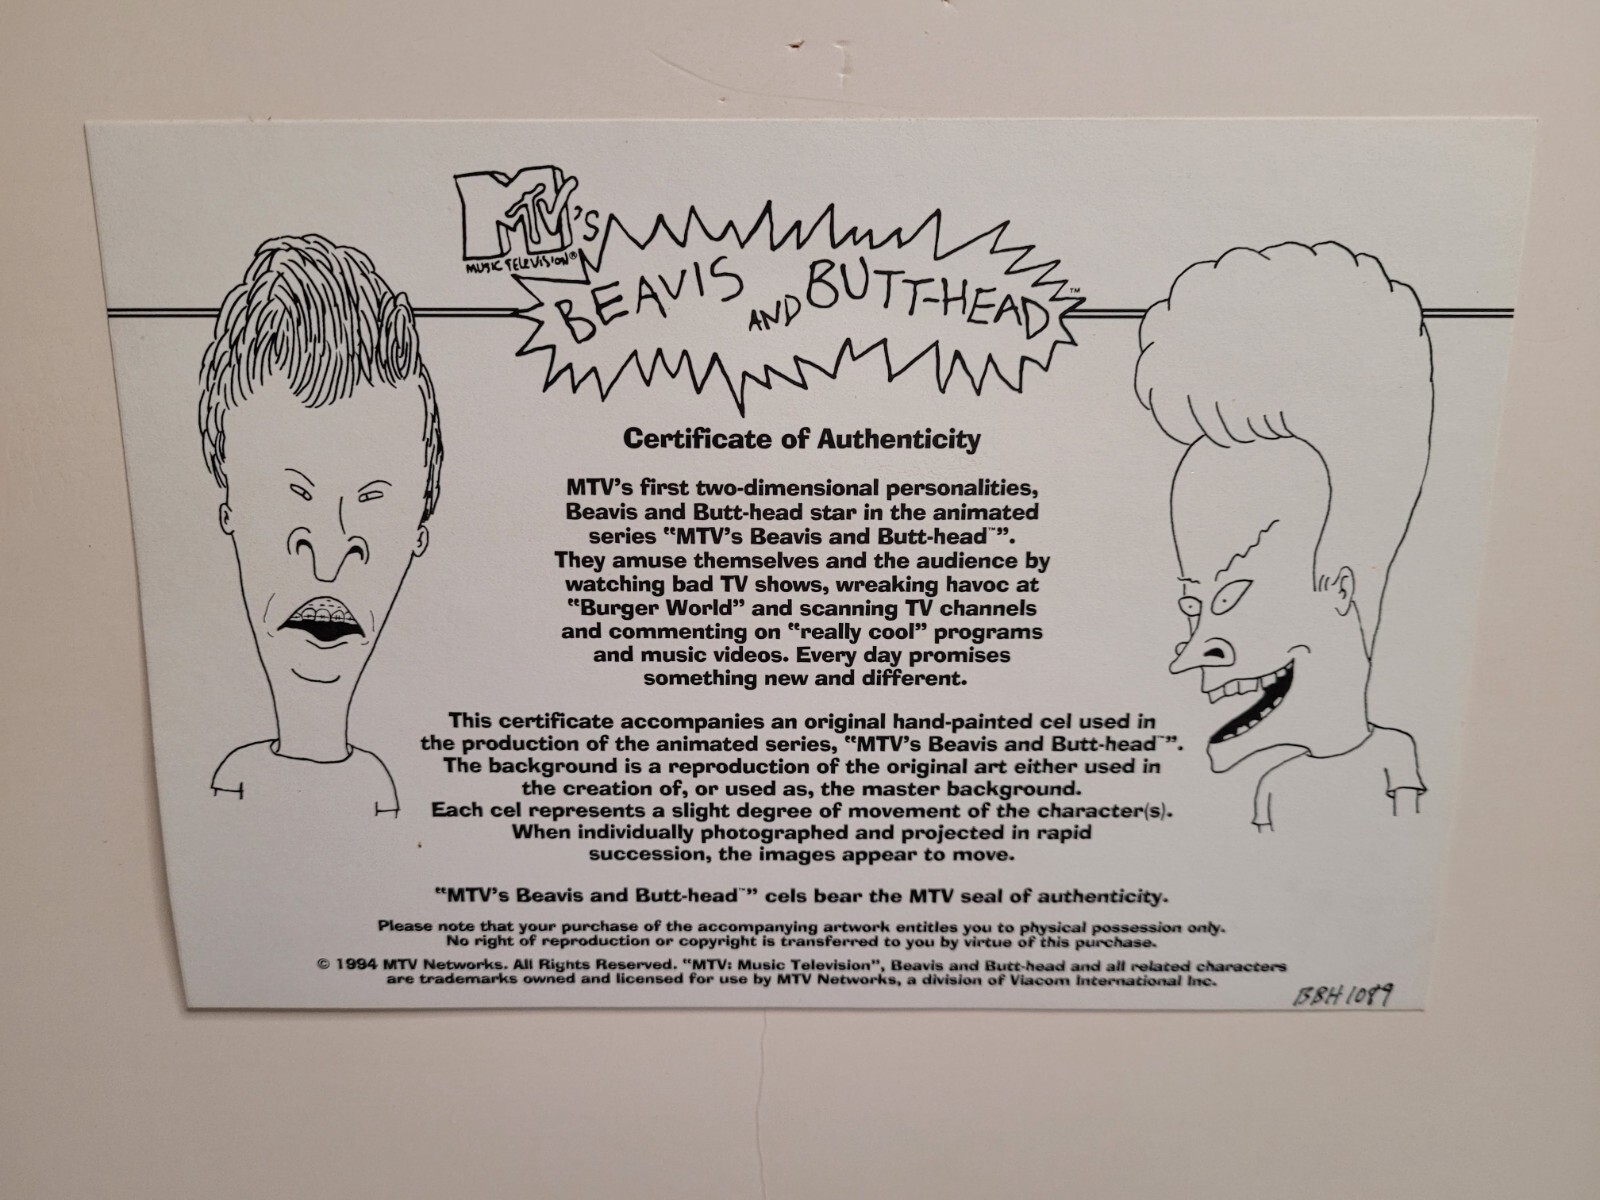 MTV'S
MUSIC TELEVISION®
BEAVIS AND BUTT-HEAD™
Certificate of Authenticity
MTV's first two-dimensional personalities,
Beavis and Butt-head star in the animated
series "MTV's Beavis and Butt-head™".
They amuse themselves and the audience by
watching bad TV shows, wreaking havoc at
"Burger World" and scanning TV channels
and commenting on "really cool" programs
and music videos. Every day promises
something new and different.
This certificate accompanies an original hand-painted cel used in
the production of the animated series, "MTV's Beavis and Butt-head™".
The background is a reproduction of the original art either used in
the creation of, or used as, the master background.
Each cel represents a slight degree of movement of the character(s).
When individually photographed and projected in rapid
succession, the images appear to move.
"MTV's Beavis and Butt-head™" cels bear the MTV seal of authenticity.
Please note that your purchase of the accompanying artwork entitles you to physical possession only.
No right of reproduction or copyright is transferred to you by virtue of this purchase.
© 1994 MTV Networks. All Rights Reserved. "MTV: Music Television", Beavis and Butt-head and all related characters
are trademarks owned and licensed for use by MTV Networks, a division of Viacom International Inc.
BBH1089